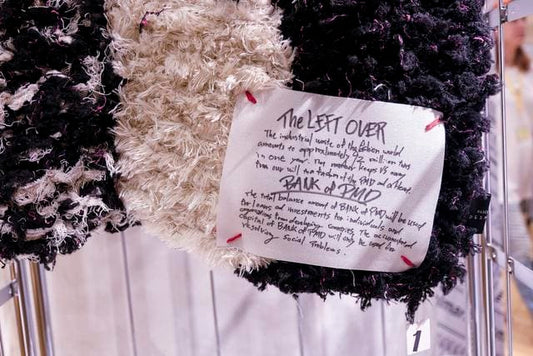 The LEFT OVER
The industrial waste of the fashion world
amounts to approximately 92 million tons
in one year. This number keeps us away
from our will
BANK of PMD
The total balance amount of BANK of PMD will be used
for loans and investments for individuals and
companies from developing countries. The accumulated
capital of BANK of PMD will only be used for
resolving Social Problems.
1